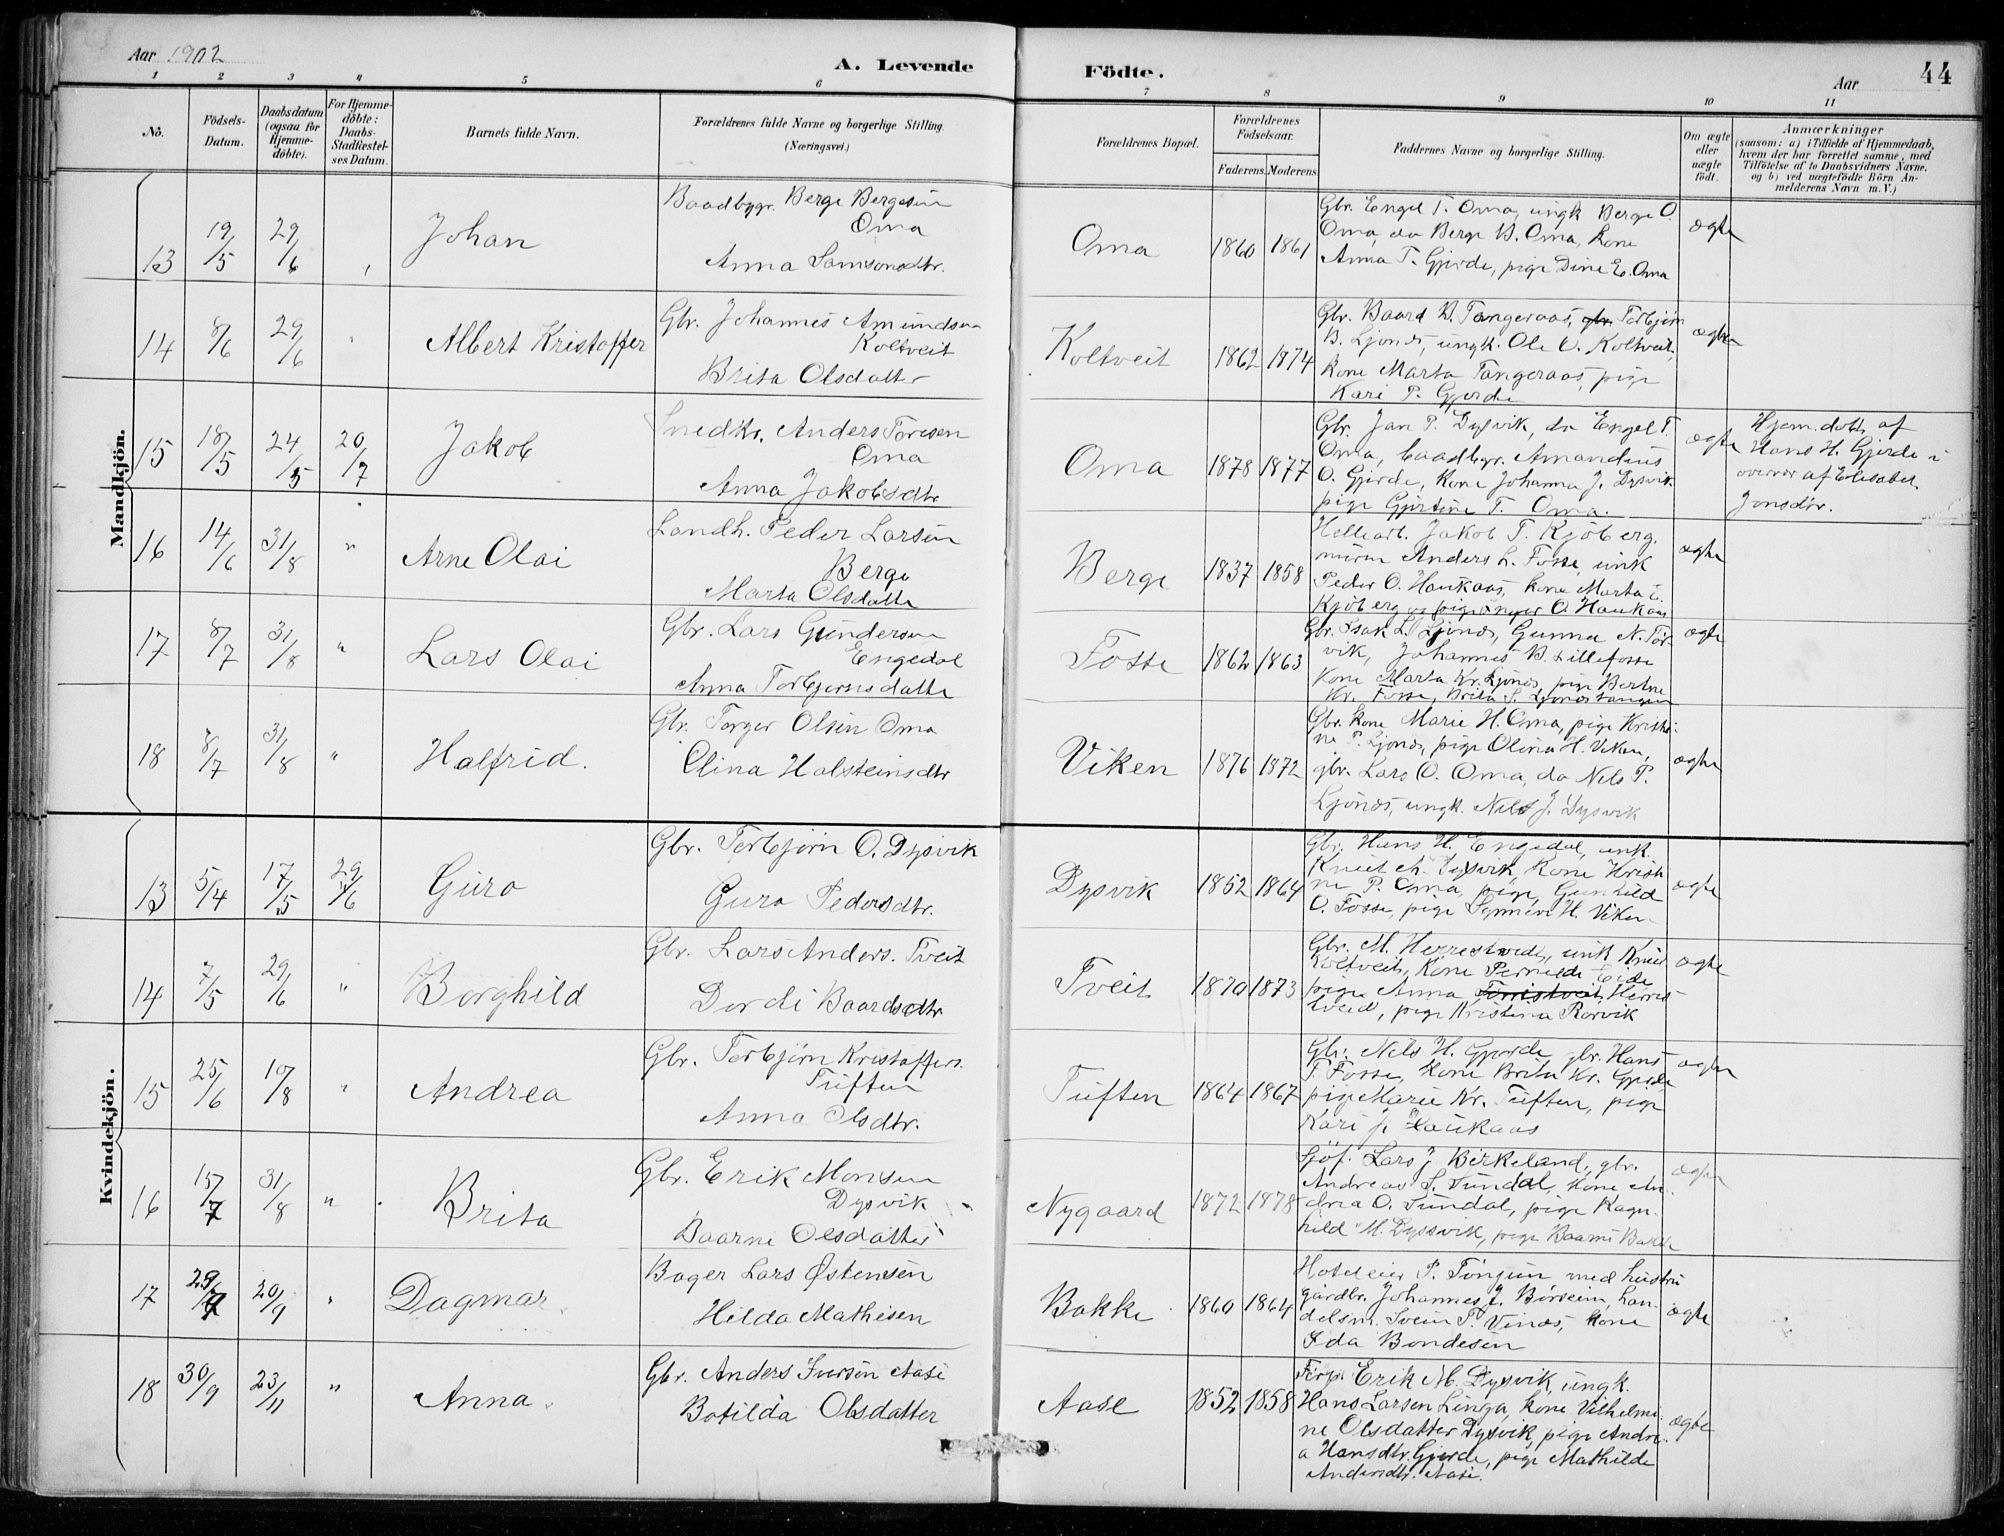 Aar 1902
A. Levende
Födte.
Aar
44
1 2 3 4 5 6 7 8 9 10 11
No.
Födsels-Datum.
Daabsdatum (ogsaa for Hjemme-döbte).
For Hjemme-döbte: Daabs-Stadfæstel-ses Datum.
Barnets fulde Navn.
Forældrenes fulde Navne og borgerlige Stilling. (Næringsvei.)
Forældrenes Bopæl.
Forældrenes Födselsaar.
Faderens. Moderens.
Faddernes Navne og borgerlige Stilling.
Om ægte eller uægte födt.
Anmærkninger
(saasom: a) i Tilfælde af Hjemmedaab, hvem der har forrettet samme, med Tilföielse af to Daabsvidners Navne. og b) ved uægtefödte Börn An-melderens Navn m. V.)
Mandkjön.
13 19/5 29/6 Johan
Baadbygr. Berge Bergesen
Oma
Anna Samsonsdtr.
Oma 1860 1861
Gbr. Engel T. Oma, ungk Berge O.
Oma, do Berge B. Oma, kone
Anna T. Gjerde, pige Dine E. Oma
ægte
14 8/6 29/6 " Albert Kristoffer
Gbr. Johannes Amundsen
Koltveit
Brita Olsdatter
Koltveit 1862 1874
Gbr. Baard D. Tangeraas, gbr. Torbjørn
B. Ljones, ungk. Ole O. Koltveit,
kone Marta Tangeraas, pige
Kari P. Gjerde
ægte
15 18/5 24/5 20/7 Jakob
Snedkr. Anders Toresen
Oma
Anna Jakobsdtr
Oma 1878 1877
Gbr. Jan P. Dysvik, do Engel T.
Oma, baadbgr. Amandius
O. Gjerde, kone Johanna J. Dysvik
pige Gjertine T. Oma.
ægte
Hjem.døbt af
Hans H. Gjerde i
overvær af Elisabet
Jonsdtr.
16 14/6 31/8 " Arne Olai
Landh. Peder Larsen
Berge
Marta Olsdatter
Berge 1837 1858
Hellearb. Jakob T. Kjöberg,
murer Anders L. Fosse, unk
Peder O. Haukaas, kone Marta
Kjöberg og pige Inger O. Haukaas
ægte
17 8/7 31/8 " Lars Olai
Gbr. Lars Gundersen
Engedal
Anna Torbjørnsdatter
Fosse 1862 1863
Gbr. Isak L. Ljones, Gunna N. Tör-
vik, Johannes B. Lillefosse
Kone Marta Kr. Ljones, pige Bertine
Kr. Fosse, Brita S. Ljonestangen
ægte
18 8/7 31/8 " Halfrid.
Gbr. Torger Olsen Oma
Elina Halsteinsdtr
Viken 1876 1872
Gbr. kone Marie H. Oma, pige Kristi-
ne P. Ljones, pige Olina H. Viken,
gbr. Lars O. Oma, do Nils P.
Ljones, ungk. Nils J. Dysvik
ægte
Kvindekjön.
13 5/4 17/5 29/6 Guro
Gbr. Torbjørn O. Dysvik
Guro Pedersdtr.
Dysvik 1852 1864
Gbr. Hans H. Engedal, unk.
Knut A. Dysvik, kone Kristi-
ne P. Oma, pige, Gunhild
O. Fosse, pige Synneve H. Viken
ægte
14 7/5 29/6 " Borghild
Gbr. Lars Anders. Tveit
Dordi Baardsdtr
Tveit 1870 1873
Gbr. M. Herrestveid, unk Knut
Koltveit, kone Pernille Eide
pige Anna Torristveit Herres-
tveid, pige Kristina Rørvik
ægte
15 25/6 10/8 " Andrea
Gbr. Torbjørn Kristoffers.
Tuften
Anna Olsdtr.
Tuften 1864 1867
Gbr. Nels H. Gjerde, gbr. Hans
T. Fosse, kone Brita Kr. Gjerde
pige Marie Kr. Tuften, pige
Kari J. Haukaas
ægte
16 15/7 31/8 " Brita
Gbr. Erik Monsen
Dysvik
Baarni Olsdatter
Nygaard 1872 1878
Sjöf. Lars J. Birkeland, gbr.
Andreas S. Sundal, kone An-
drea O. Sundal, pige Ragn-
hild M. Dyssvik, pige Baarni Bakke
ægte
17 29/7 20/9 " Dagmar.
Bager Lars Østensen
Hilda Mathisen
Bakke 1860 1864
Hoteleier P. Sönjun med hustru
gårdbr. Johannes J. Börseim, han-
delsm. Svein P. Vines, kone
Ida Bondesen
ægte
18 30/9 23/11 " Anna.
Gbr. Anders Iversen Aase
Botilda Olsdatter
Aase 1852 1858
Erik M. Dysvik, ungk.
Hans Larsen Linga, kone Vilhelmi-
ne Olsdatter Dysvik, pige Andre-
a Hansdtr. Gjerde, pige Mathilde
Andersdtr. Aase.
ægte